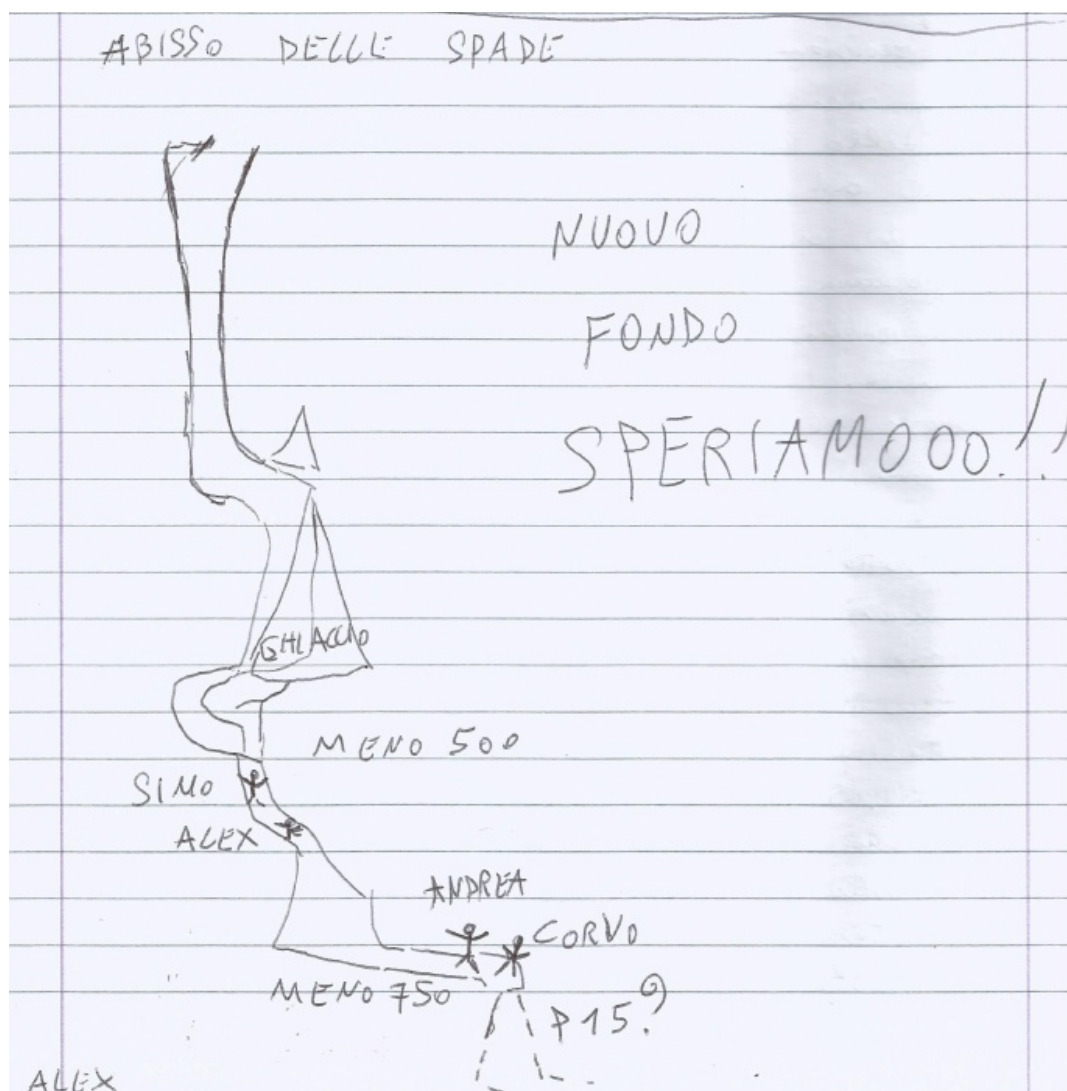 ABISSO DELLE SPADE
NUOVO
FONDO
SPERIAMOOO!!
GHIACCIO
MENO 500
SIMO
ALEX
ANDREA
CORVO
MENO 750
P15?
ALEX